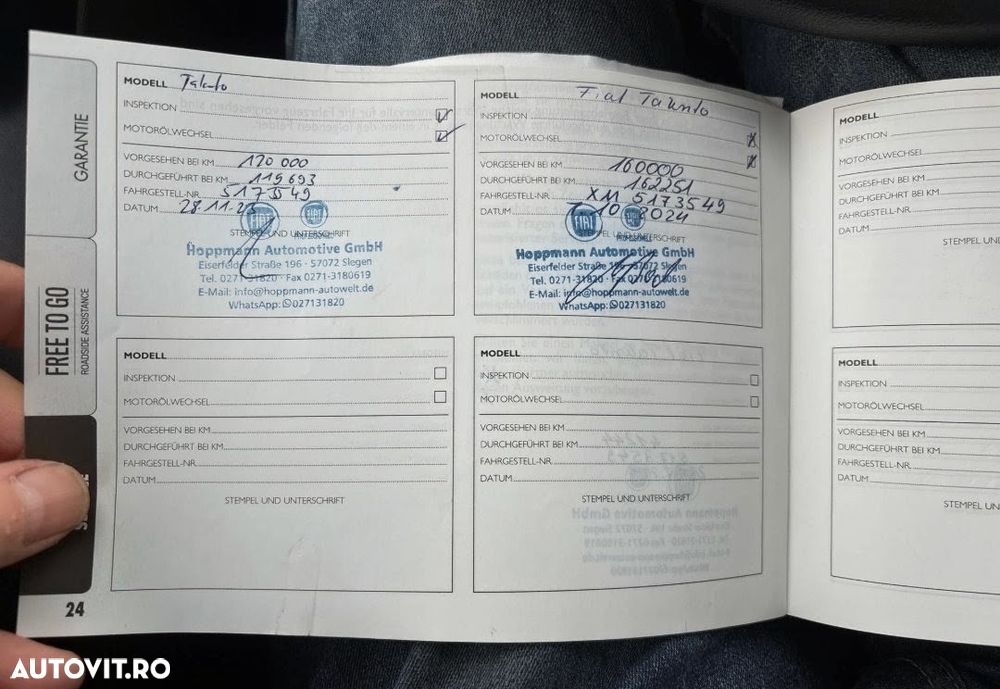 GARANTIE
FREE TO GO
ROADSIDE ASSISTANCE
MODELL Talento
INSPEKTION
MOTORÖLWECHSEL
VORGESEHEN BEI KM 120 000
DURCHGEFÜHRT BEI KM 119693
FAHRGESTELL-NR. 5173549
DATUM 28.11.23
STEMPEL UND UNTERSCHRIFT
FIAT
Hoppmann Automotive GmbH
Eiserfelder Straße 196 · 57072 Siegen
Tel. 0271-31820 · Fax 0271-3180619
E-Mail: info@hoppmann-autowelt.de
WhatsApp: 027131820
MODELL Fiat Talento
INSPEKTION
MOTORÖLWECHSEL
VORGESEHEN BEI KM 160000
DURCHGEFÜHRT BEI KM 162251
FAHRGESTELL-NR. XM 5173549
DATUM
FIAT
STEMPEL UND UNTERSCHRIFT
Hoppmann Automotive GmbH
Eiserfelder Straße 196 · 57072 Siegen
Tel. 0271-31820 · Fax 0271-3180619
E-Mail: info@hoppmann-autowelt.de
WhatsApp: 027131820
MODELL
INSPEKTION
MOTORÖLWECHSEL
VORGESEHEN BEI KM
DURCHGEFÜHRT BEI KM
FAHRGESTELL-NR.
DATUM
STEMPEL UND UNTERSCHRIFT
MODELL
INSPEKTION
MOTORÖLWECHSEL
VORGESEHEN BEI KM
DURCHGEFÜHRT BEI KM
FAHRGESTELL-NR.
DATUM
STEMPEL UND UNTERSCHRIFT
24
MODELL
INSPEKTION
MOTORÖLWECHSEL
VORGESEHEN BEI KM
DURCHGEFÜHRT BEI KM
FAHRGESTELL-NR.
DATUM
STEMPEL U
MODELL
INSPEKTION
MOTORÖLWECHSEL
VORGESEHEN BEI KM
DURCHGEFÜHRT BEI KM
FAHRGESTELL-NR.
DATUM
STEMPEL UN
AUTOVIT.RO